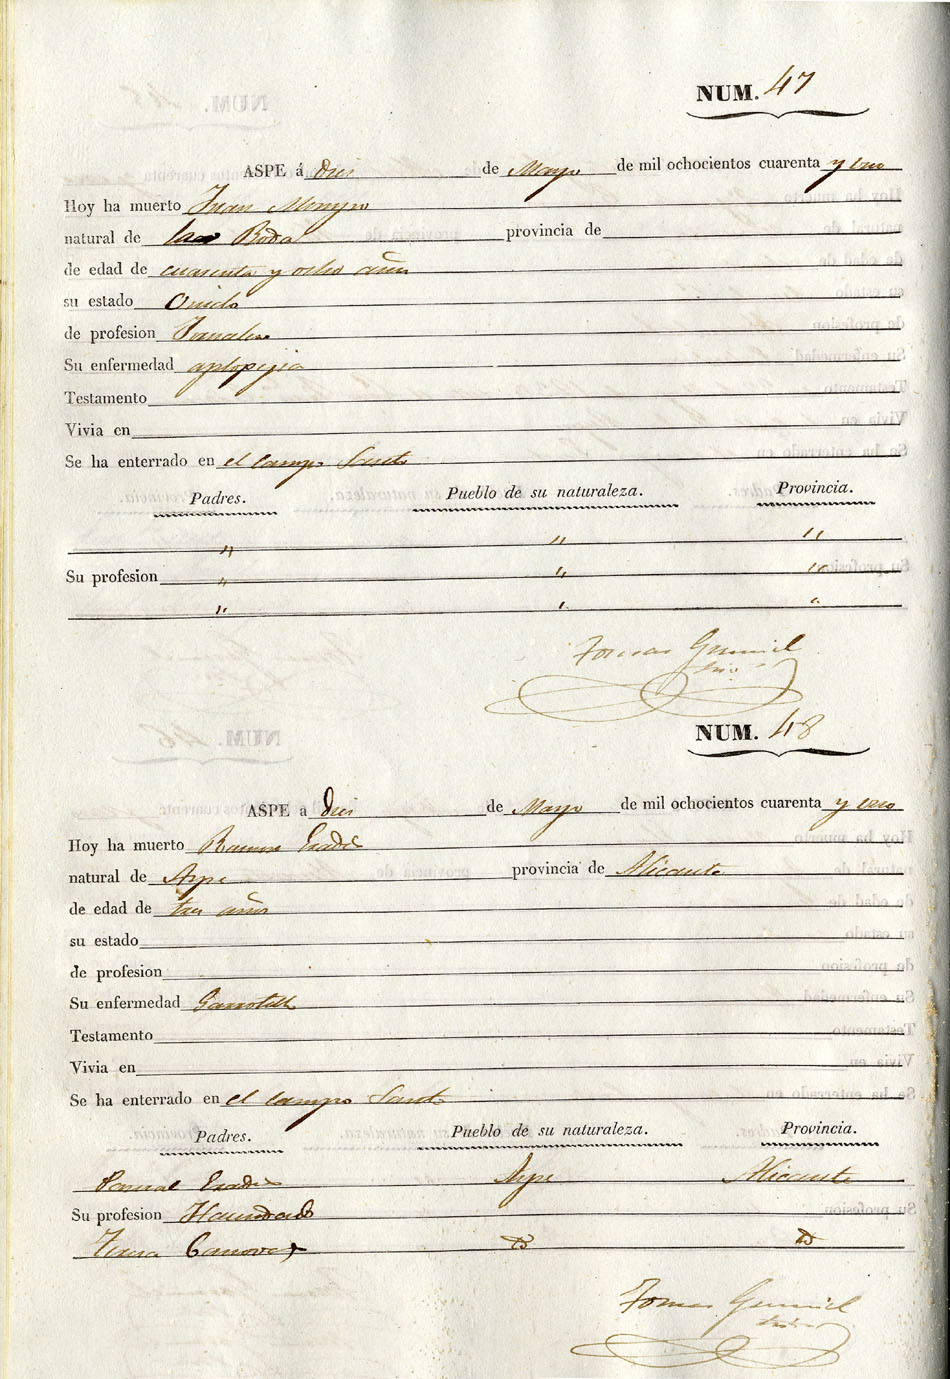 NUM. 47
ASPE á dies de Mayo de mil ochocientos cuarenta y uno
Hoy ha muerto Juan Monsyo
natural de La Roda provincia de
de edad de cuarenta y ocho años
su estado Viudo
de profesion Jornalero
Su enfermedad aplopegia
Testamento
Vivia en
Se ha enterrado en el campo Santo
Padres. Pueblo de su naturaleza. Provincia.
" " "
Su profesion " " "
" " "
Tomas Gumiel
NUM. 48
ASPE a dies de Mayo de mil ochocientos cuarenta y uno
Hoy ha muerto Ramon
natural de Aspe provincia de Alicante
de edad de tres años
su estado
de profesion
Su enfermedad Garrotillo
Testamento
Vivia en
Se ha enterrado en el campo Santo
Padres. Pueblo de su naturaleza. Provincia.
Pascual Aspe Alicante
Su profesion Hacendado
Teresa Canovas Yd Yd
Tomas Gumiel